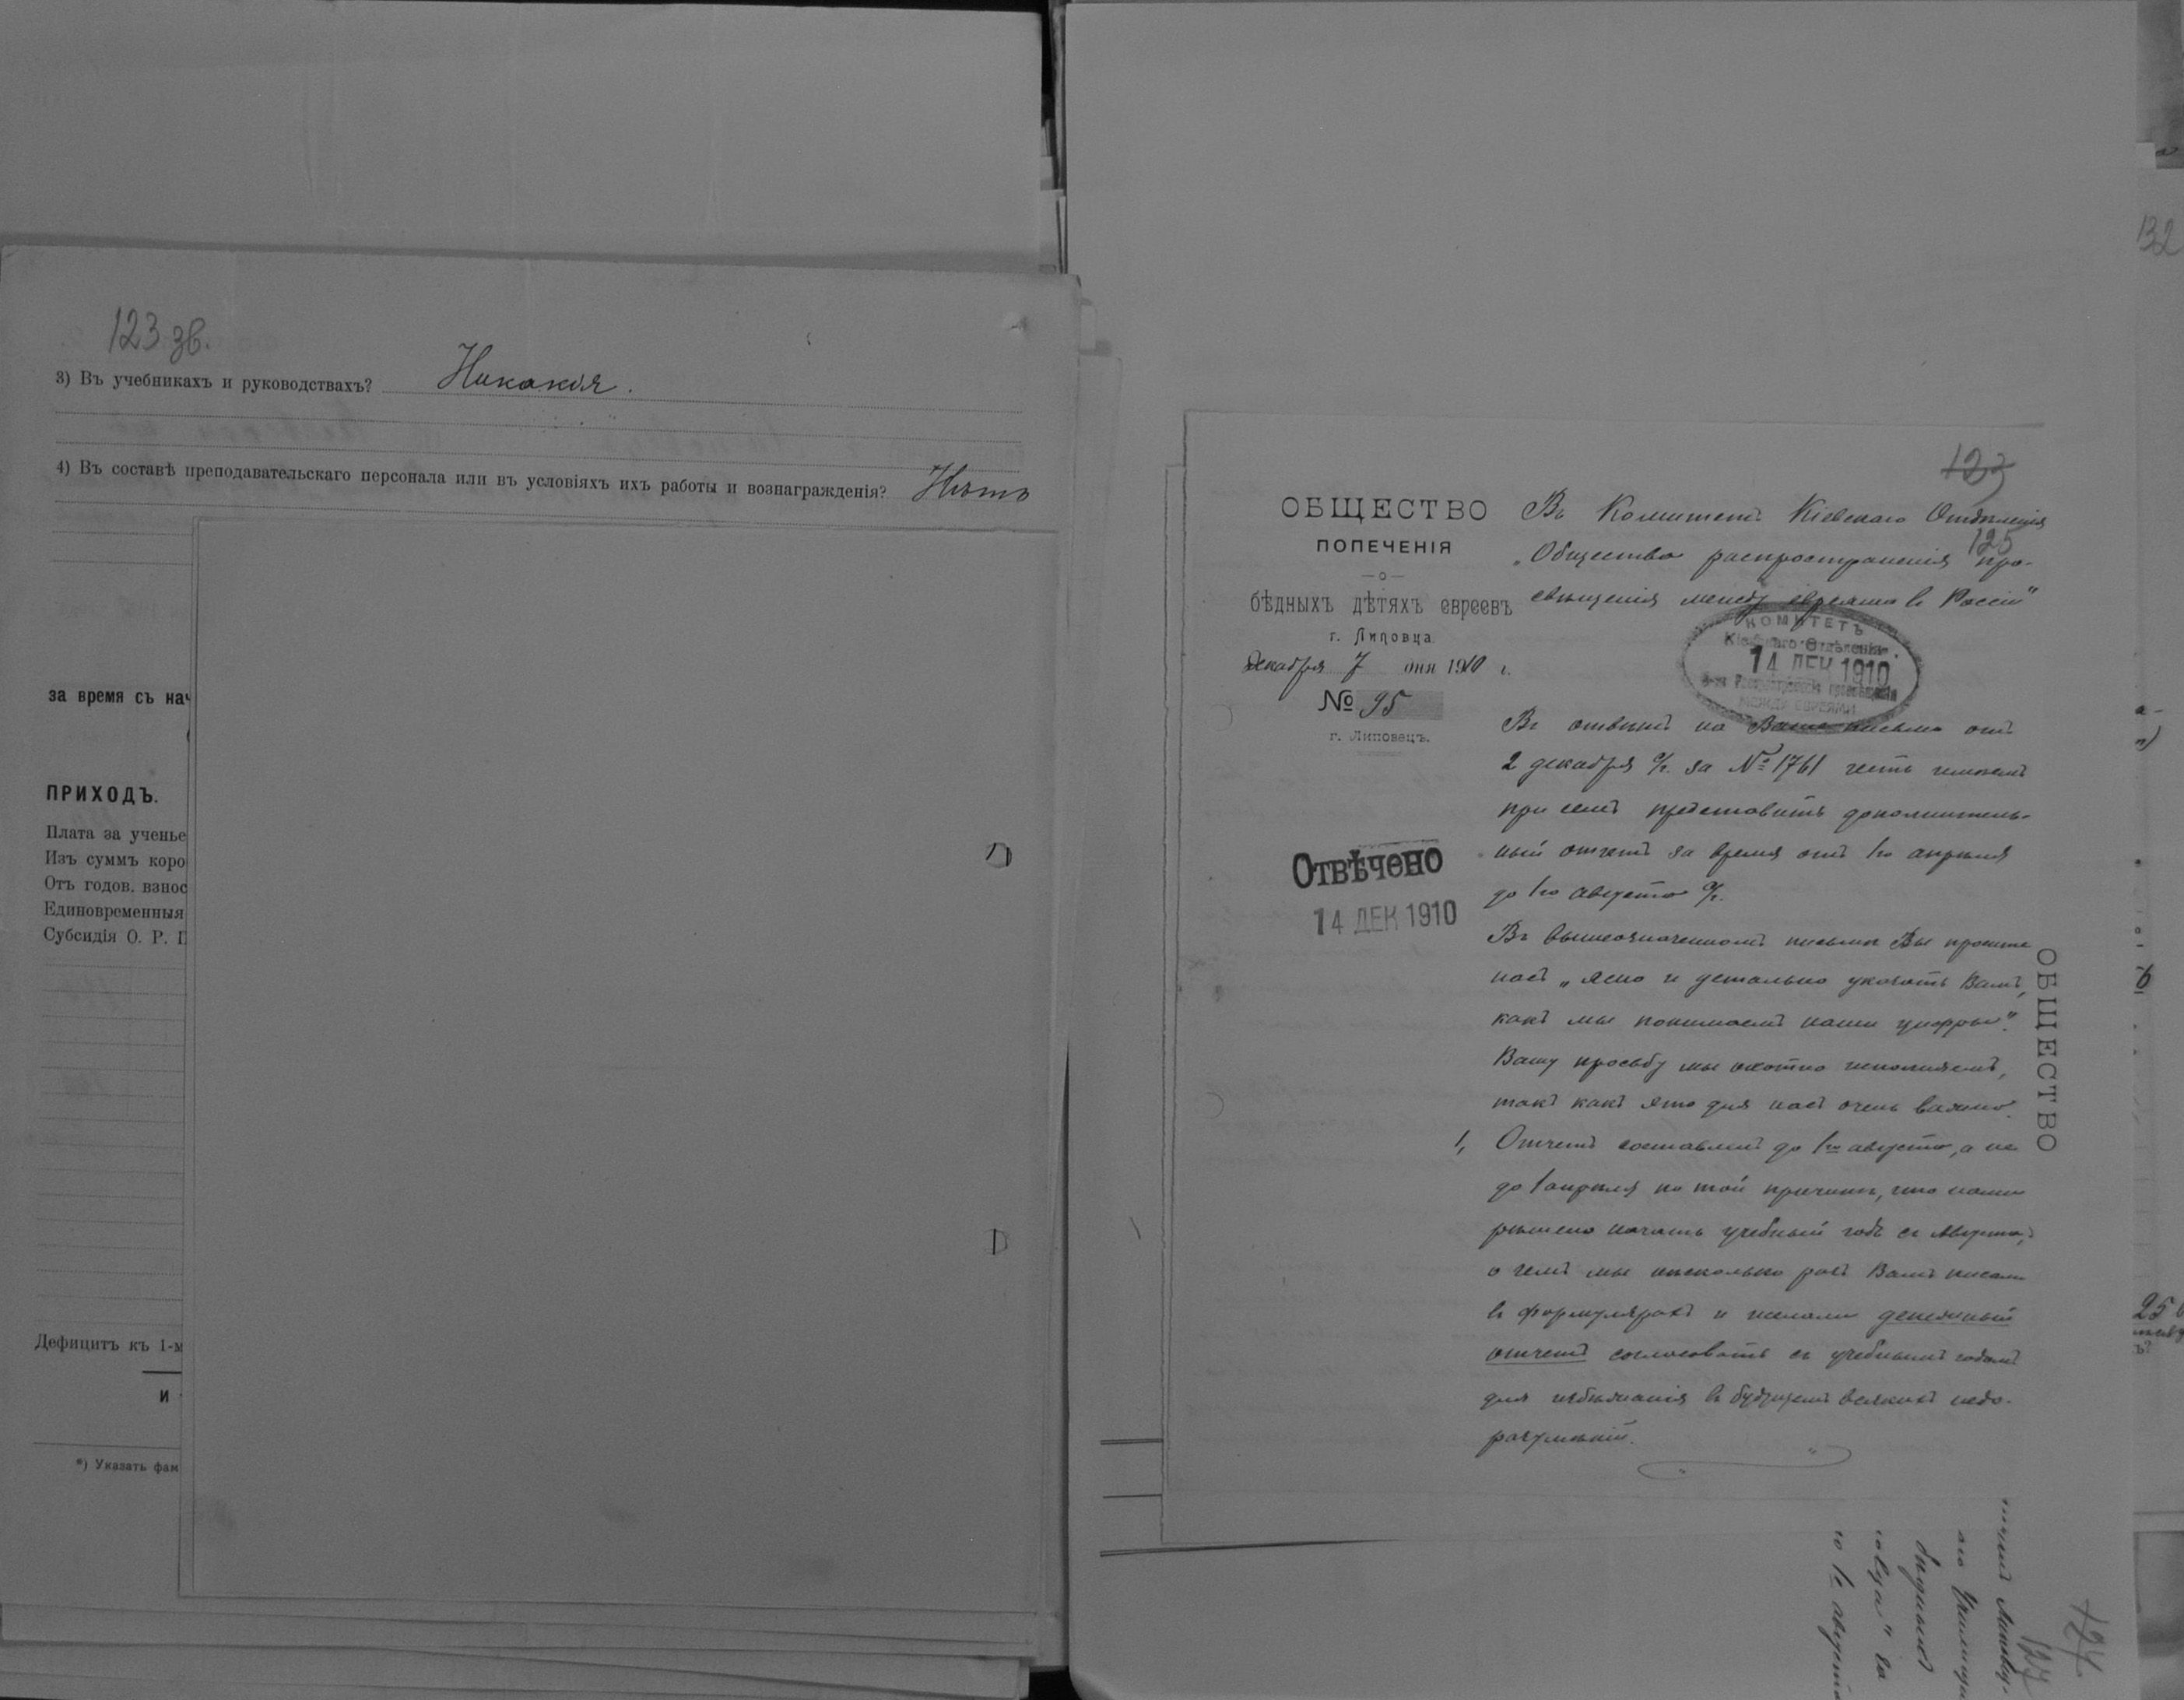 123 зв.
3) Въ учебникахъ и руководствахъ? Никакія.
4) Въ составѣ преподавательскаго персонала или въ условіяхъ ихъ работы и вознагражденія? Нѣтъ
за время съ нач
ПРИХОДЪ.
Плата за ученье
Изъ суммъ коро
Отъ годов. взнос
Единовременныя
Субсидія О. Р. П
Дефицитъ къ 1-м
И
*) Указать фам
123
125
ОБЩЕСТВО
ПОПЕЧЕНІЯ
—о—
бѣдныхъ дѣтяхъ евреевъ
г. Липовца
Декабря 7 дня 1910 г.
№ 95
г. Липовецъ.
Отвѣчено
14 ДЕК 1910
Въ Комитетъ Кіевскаго Отдѣленія
„Общества распространенія про-
свѣщенія между евреями въ Россіи"
КОМИТЕТЪ
Кіевскаго Отдѣленія
14 ДЕК 1910
О-ва Распространенія просвѣщенія
МЕЖДУ ЕВРЕЯМИ
Въ отвѣтъ на Ваше письмо отъ
2 декабря с/г. за № 1761 честь имѣемъ
при семъ представить дополнитель-
ный отчетъ за время отъ 1го апрѣля
до 1го августа с/г.
Въ вышеозначенномъ письмѣ Вы просите
насъ „ясно и детально указать Вамъ,
какъ мы понимаемъ наши цифры".
Вашу просьбу мы охотно исполняемъ,
такъ какъ это для насъ очень важно.
1, Отчетъ составленъ до 1го августа, а не
до 1 апрѣля по той причинѣ, что нами
рѣшено начать учебный годъ съ Августа,
о чемъ мы нѣсколько разъ Вамъ писали
въ формулярахъ и желали денежный
отчетъ согласовать съ учебнымъ годомъ
для избѣжанія въ будущемъ всякихъ недо-
разумѣній.
ОБЩЕСТВО
124
127
132
25